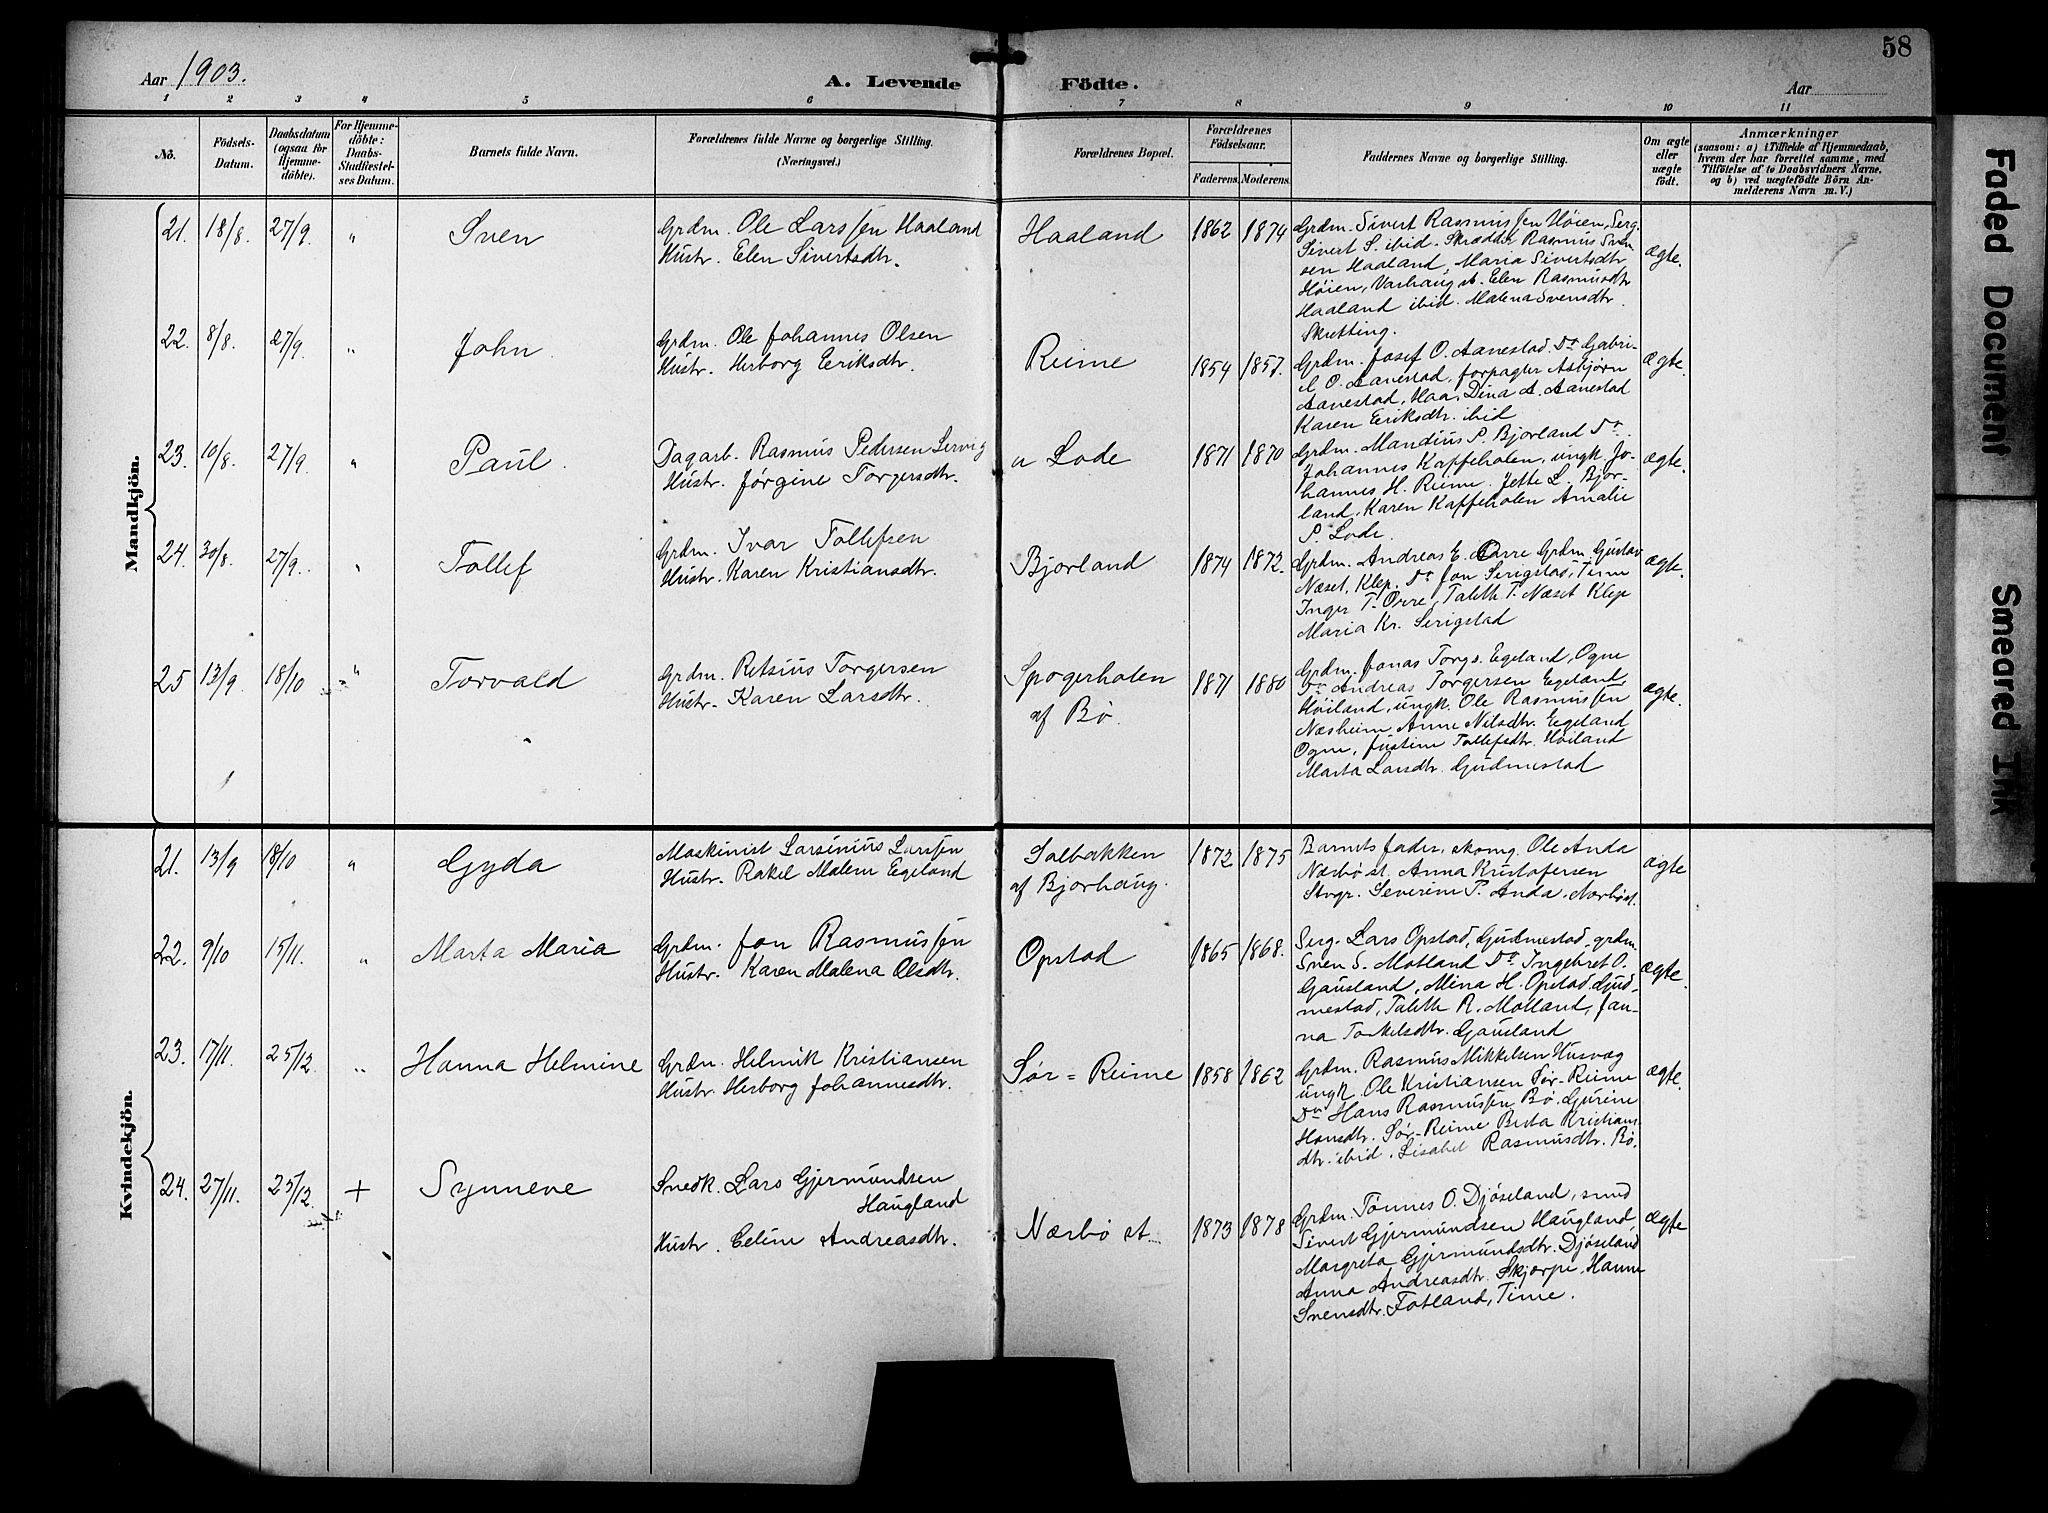 58
Aar 1903.
A. Levende Födte.
Aar
1 2 3 4 5 6 7 8 9 10 11
No.
Födsels-Datum.
Daabsdatum (ogsaa for Hjemme-döbte).
For Hjemme-döbte: Daabs-Stadfæstel-ses Datum.
Barnets fulde Navn.
Forældrenes fulde Navne og borgerlige Stilling.
(Næringsvei.)
Forældrenes Bopæl.
Forældrenes Fødselsaar.
Faderens. Moderens.
Faddernes Navne og borgerlige Stilling.
Om ægte eller uægte födt.
Anmærkninger
(saasom: a) i Tilfælde af Hjemmedaab,
hvem der har forrettet samme, med
Tilføielse af to Daabsvidners Navne,
og b) ved uægtefödte Börn An-
melderens Navn m. V.)
Mandkjön.
21. 18/8. 27/9. " Sven
Grdm. Ole Larssen Haaland
Hustr. Elen Sivertsdtr.
Haaland 1862 1874
Grdm. Sivert Rasmussen Høien, Serg.
Sivert S. ibid. Skrædder Rasmus Sven-
sen Haaland, Maria Sivertsdtr
Høien, Varhaug st. Elen Rasmusdtr
Haaland ibid. Malena Svensdtr.
Skretting.
ægte.
22. 8/8. 27/9. " John.
Grdm. Ole Johannes Olsen
Hustr. Herborg Eriksdtr.
Reime 1854 1857.
Grdm. Josef O. Aanestad. Do Gabri-
el O. Aanestad, forpagter Asbjørn
Aanestad, Haa, Dina A. Aanestad
Karen Eriksdtr. ibid
ægte.
23. 10/8. 27/9. " Paul.
Dagarb. Rasmus Pedersen Servig
Hustr. Jørgine Torgersdtr.
u Lode 1871 1870
Grdm. Mandius P. Bjorland Do
Johannes Kaffeholen, ungk. Jo-
hannes H. Reime. Jette L. Bjor-
land, Karen Kaffeholen Amalie
P. Lode.
ægte.
24. 30/8. 27/9. " Tollef
Grdm. Ivar Tollefsen
Hustr. Karen Kristiansdtr.
Bjorland 1874 1872.
Grdm. Andreas E. Orre Grdm. Gustav
Næset, Klep. Do Jon Serigstad, Time
Inger T. Orre, Taleth T. Næset Klep
Maria Kr. Serigstad
ægte.
25 13/9. 18/10 " Torvald
Grdm. Retsius Torgersen
Hustr. Karen Larsdtr.
Spogerholen
af Bø.
1871 1880
Grdm. Jonas Torgs. Egeland, Ogne
Do Andreas Torgersen Egeland,
Høiland, ungk. Ole Rasmussen
Næsheim, Anne Nilsdtr. Egeland
Ogne, Justine Tollefsdtr. Høiland
Marta Larsdtr. Gudmestad
ægte.
Kvindekjön.
21. 13/9 18/10 " Gyda
Maskinist Larsinius Larssen
Hustr. Rakel Malene Egeland
Solbakken
af Bjorhaug.
1872 1875
Barnets fader, skomg. Ole Anda
Nærbø st. Anna Kristofersen
Stvgr. Severine P. Anda, Nærbøst.
ægte
22. 9/10 15/11. " Marta Maria
Grdm. Jon Rasmussen
Hustr. Karen Malena Olsdtr.
Opstad 1865 1868.
Serg. Lars Opstad, Gudmestad, grdm.
Sven S. Motland Do Ingebret O.
Gausland, Mina H. Opstad, Gud-
mestad, Taleth R. Motland, Jan-
na Torkelsdtr. Gausland
ægte.
23. 17/11. 25/12. " Hanna Helmine
Grdm. Helmik Kristiansen
Hustr. Herborg Johannesdtr.
Sør=Reime 1858 1862
Grdm. Rasmus Mikkelsen Husvæg
ungk. Ole Kristiansen Sør-Reime
Do Hans Rasmussen Bø, Gurine
Hansdtr. Sør-Reime Berta Kristians-
dtr. ibid. Lisabet Rasmusdtr. Bø.
ægte.
24. 27/11. 25/12. + Synneve
Snedk. Lars Gjermundsen
Haugland
Hustr. Eeline Andreasdtr.
Nærbø st. 1873 1878
Grdm. Tønnes O. Djøseland, smed
Sivert Gjermundsen Haugland,
Margreta Gjermundsdtr. Djøseland
Anna Andreasdtr. Skjærpe, Hanne
Svensdtr. Fotland, Time.
ægte
Faded Document
Smeared Ink